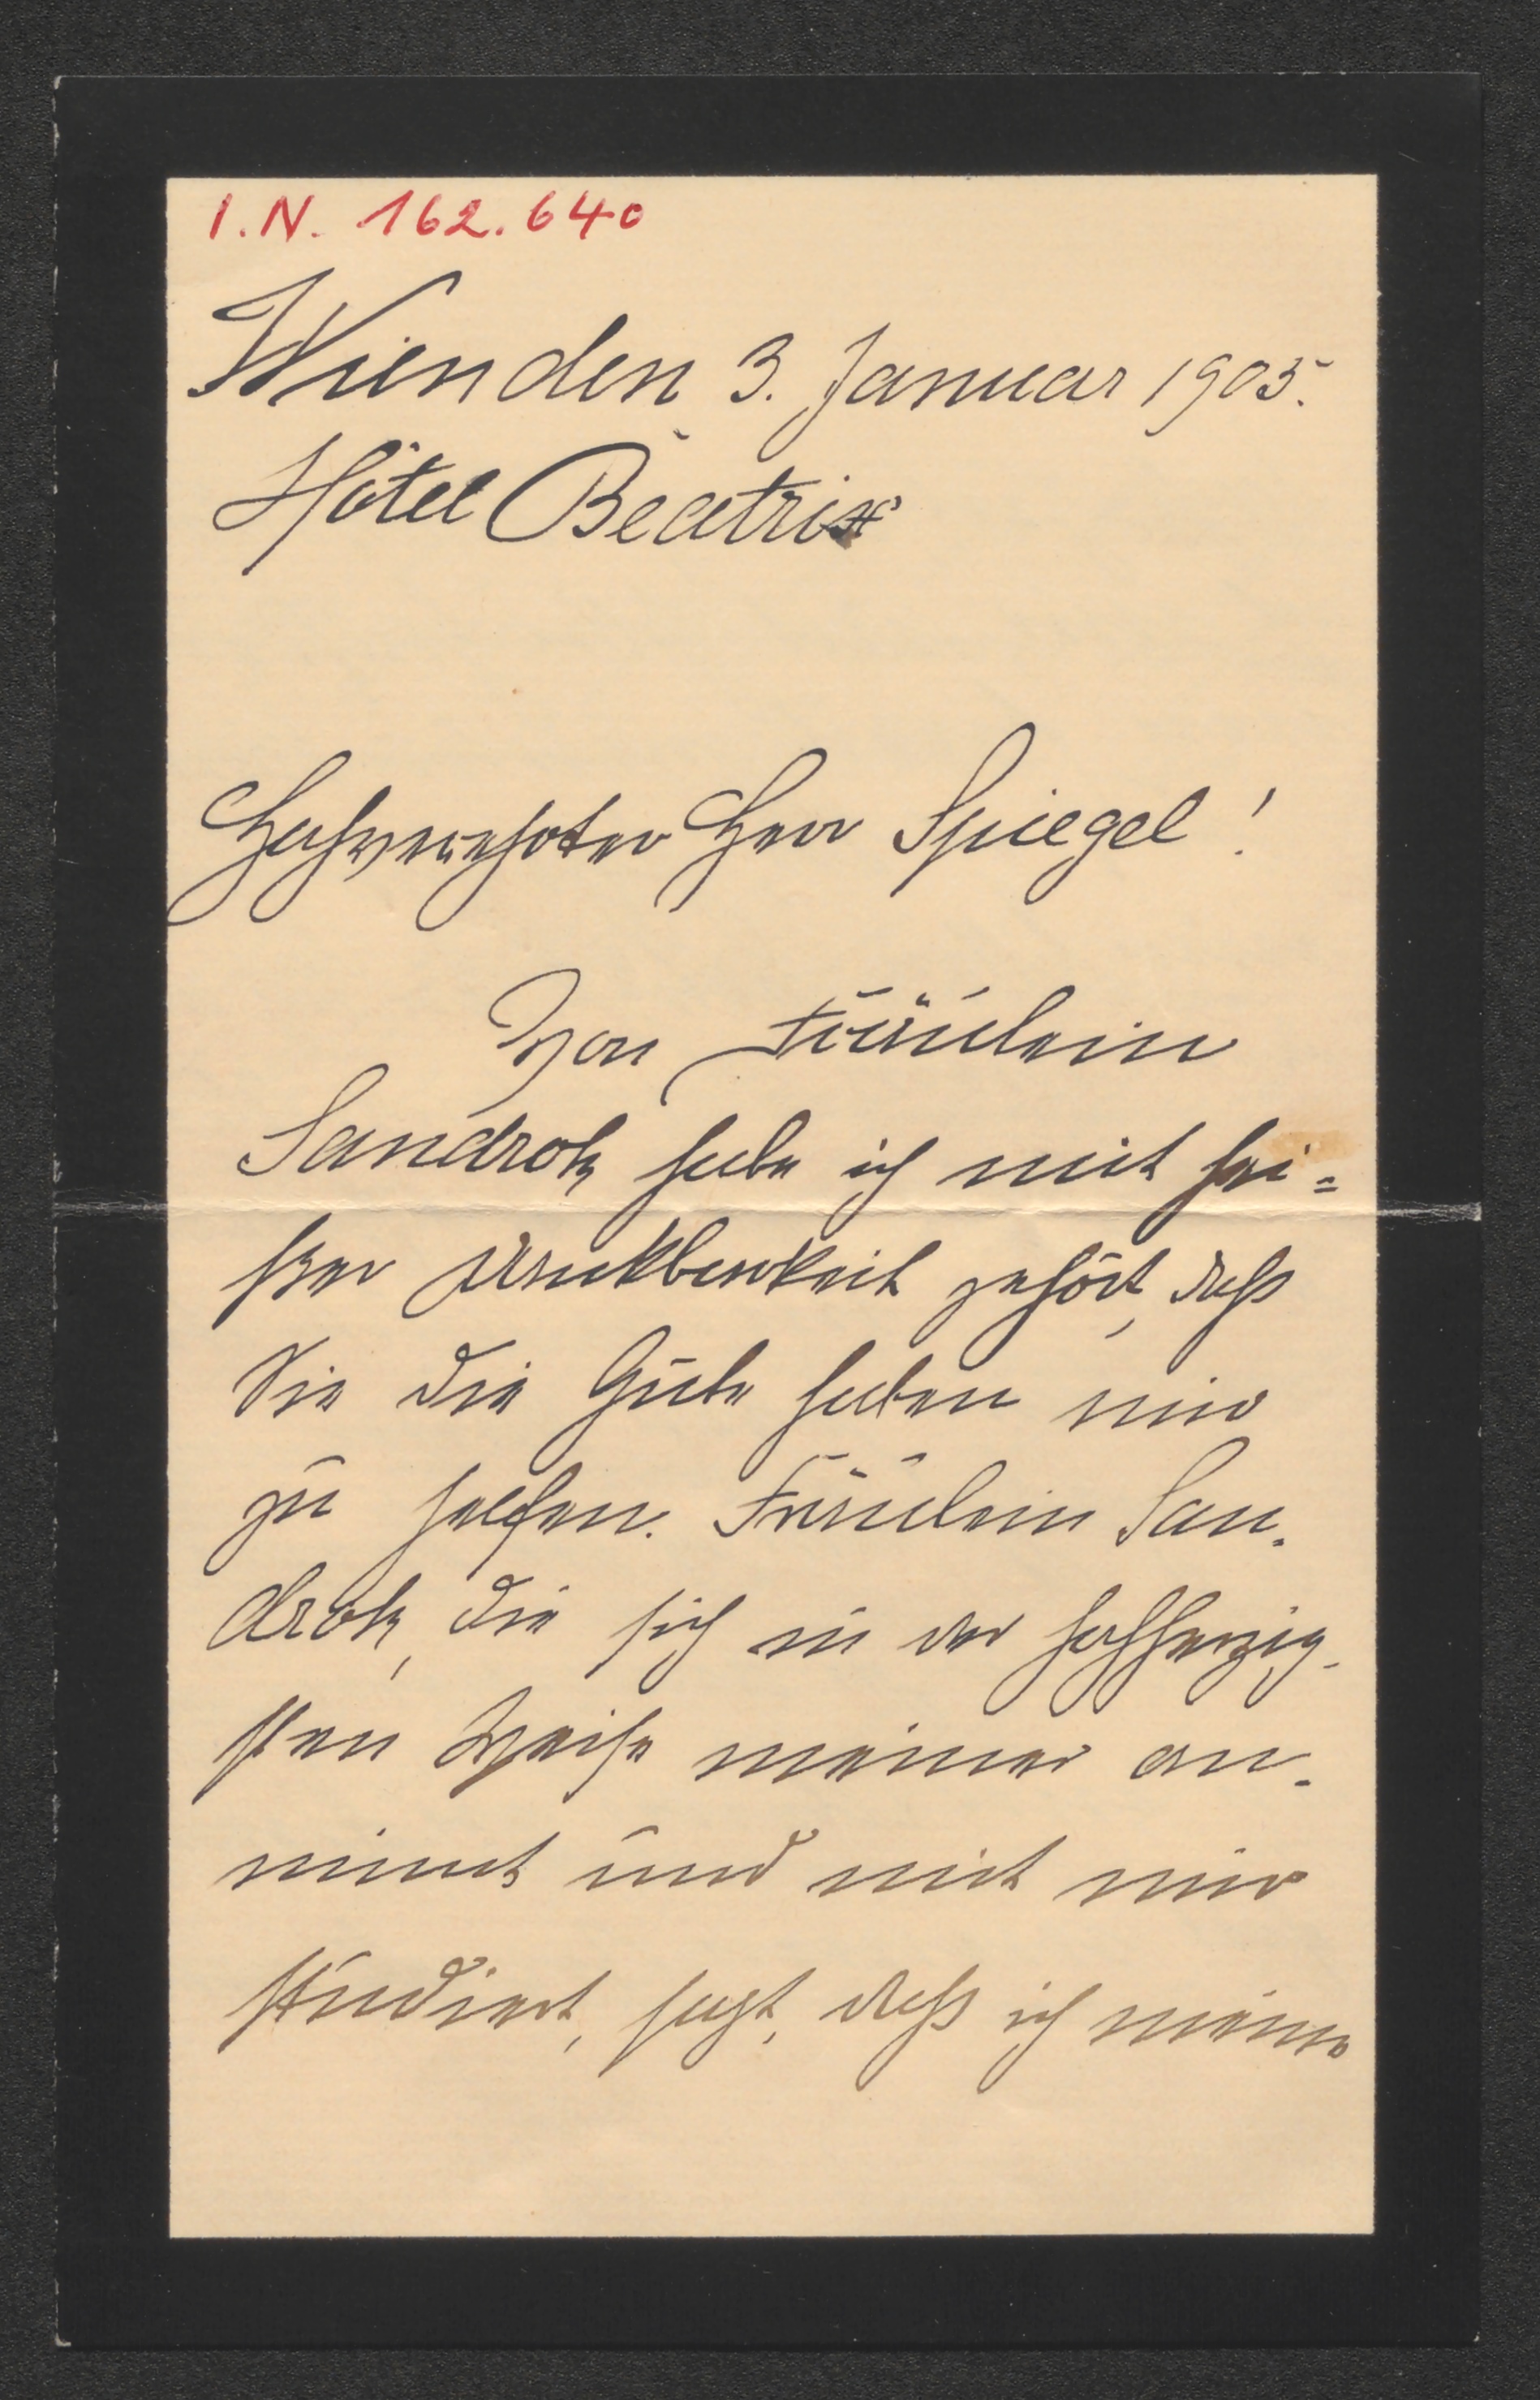 I.N. 162.640
Wien den 3. Januar 1905.
Hôtel Beatrix
Hochverehrter Herr Spiegel!
Von Fräulein
Sandrok habe ich mit hei=
ßer Dankbarkeit gehört, daß
Sie die Güte haben mir
zu helfen. Fräulein San-
drok, die sich in der hochherzig-
sten Weise meiner an-
nimmt und mit mir
studiert, sagt, daß ich meine